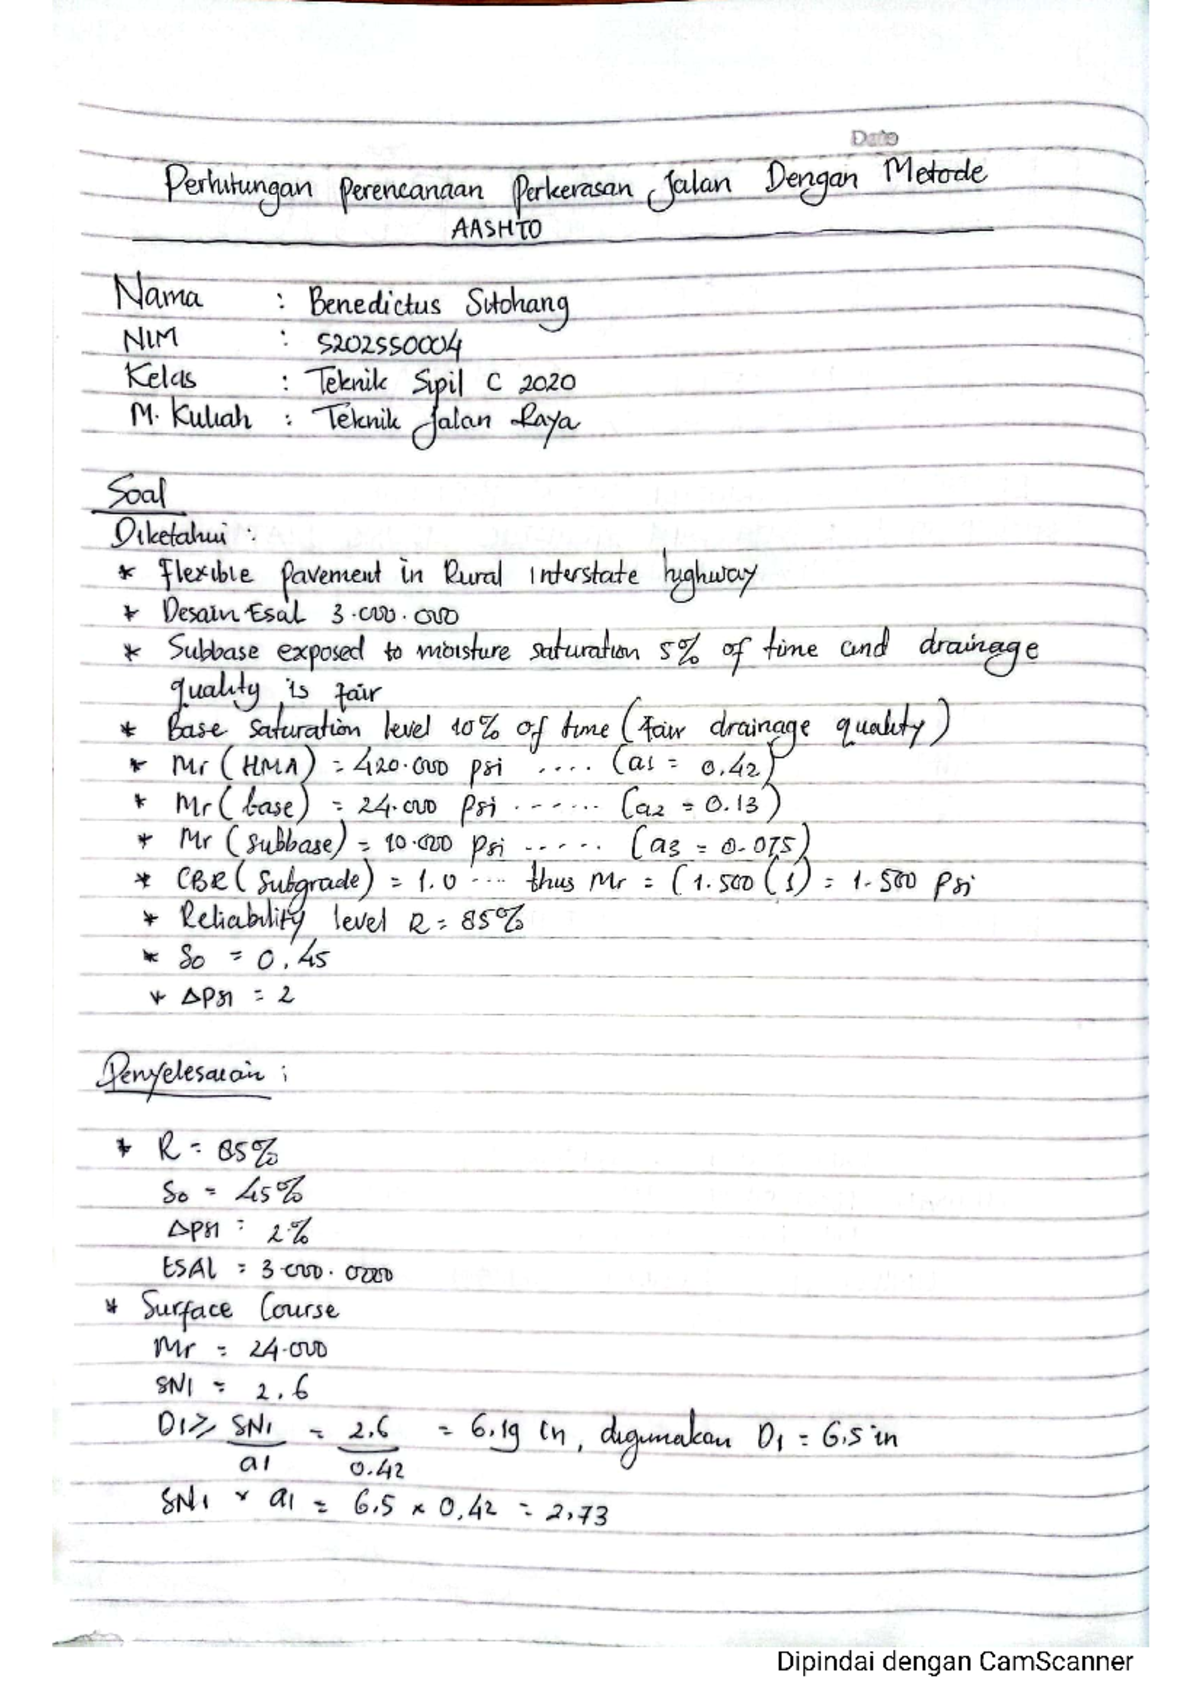 Date
Perhitungan Perencanaan Perkerasan Jalan Dengan Metode
AASHTO
Nama : Benedictus Sitohang
NIM : 5202550004
Kelas : Teknik Sipil C 2020
M. Kuliah : Teknik Jalan Raya
Soal
Diketahui :
* Flexible pavement in Rural Interstate highway
* Desain Esal 3.000.000
* Subbase exposed to moisture saturation 5% of time and drainage
quality is fair
* Base saturation level 10% of time (fair drainage quality)
* Mr (HMA) = 420.000 psi .... (a1 = 0.42)
* Mr (base) = 24.000 psi ...... (a2 = 0.13)
* Mr (subbase) = 10.000 psi ..... (a3 = 0.075)
* CBR (Subgrade) = 1.0 ... thus Mr = (1.500 (1) = 1.500 psi
* Reliability level R = 85%
* So = 0.45
* ΔPSI = 2
Penyelesaian ;
* R = 85%
So = 45%
ΔPSI = 2%
ESAL = 3.000.0000
* Surface Course
Mr = 24.000
SN1 = 2.6
D1 ≥ SN1/a1 = 2.6/0.42 = 6,19 in, digunakan D1 = 6,5 in
SN1 × a1 = 6,5 × 0,42 = 2,73
Dipindai dengan CamScanner